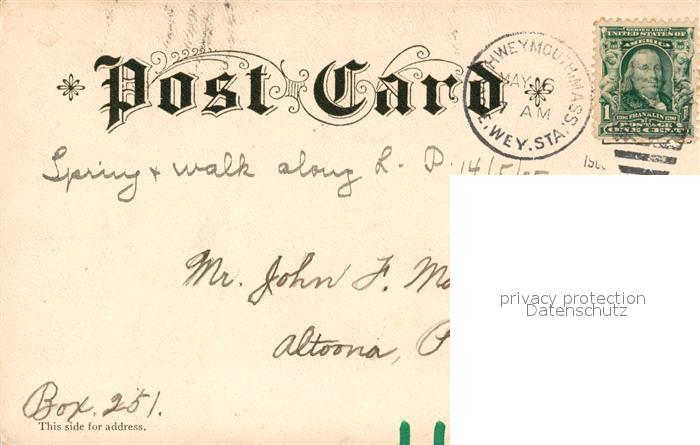 Post Card
HWEYMOUTH.MASS.
MAY 6
7 AM
E. WEY. STA.
SERIES 1902
UNITED STATES OF
AMERICA
1 FRANKLIN
POSTAGE
ONE CENT
Spring + walk along L. P. 14/5/05
Mr. John F. Mo
Altoona, P
privacy protection
Datenschutz
Box. 251.
This side for address.